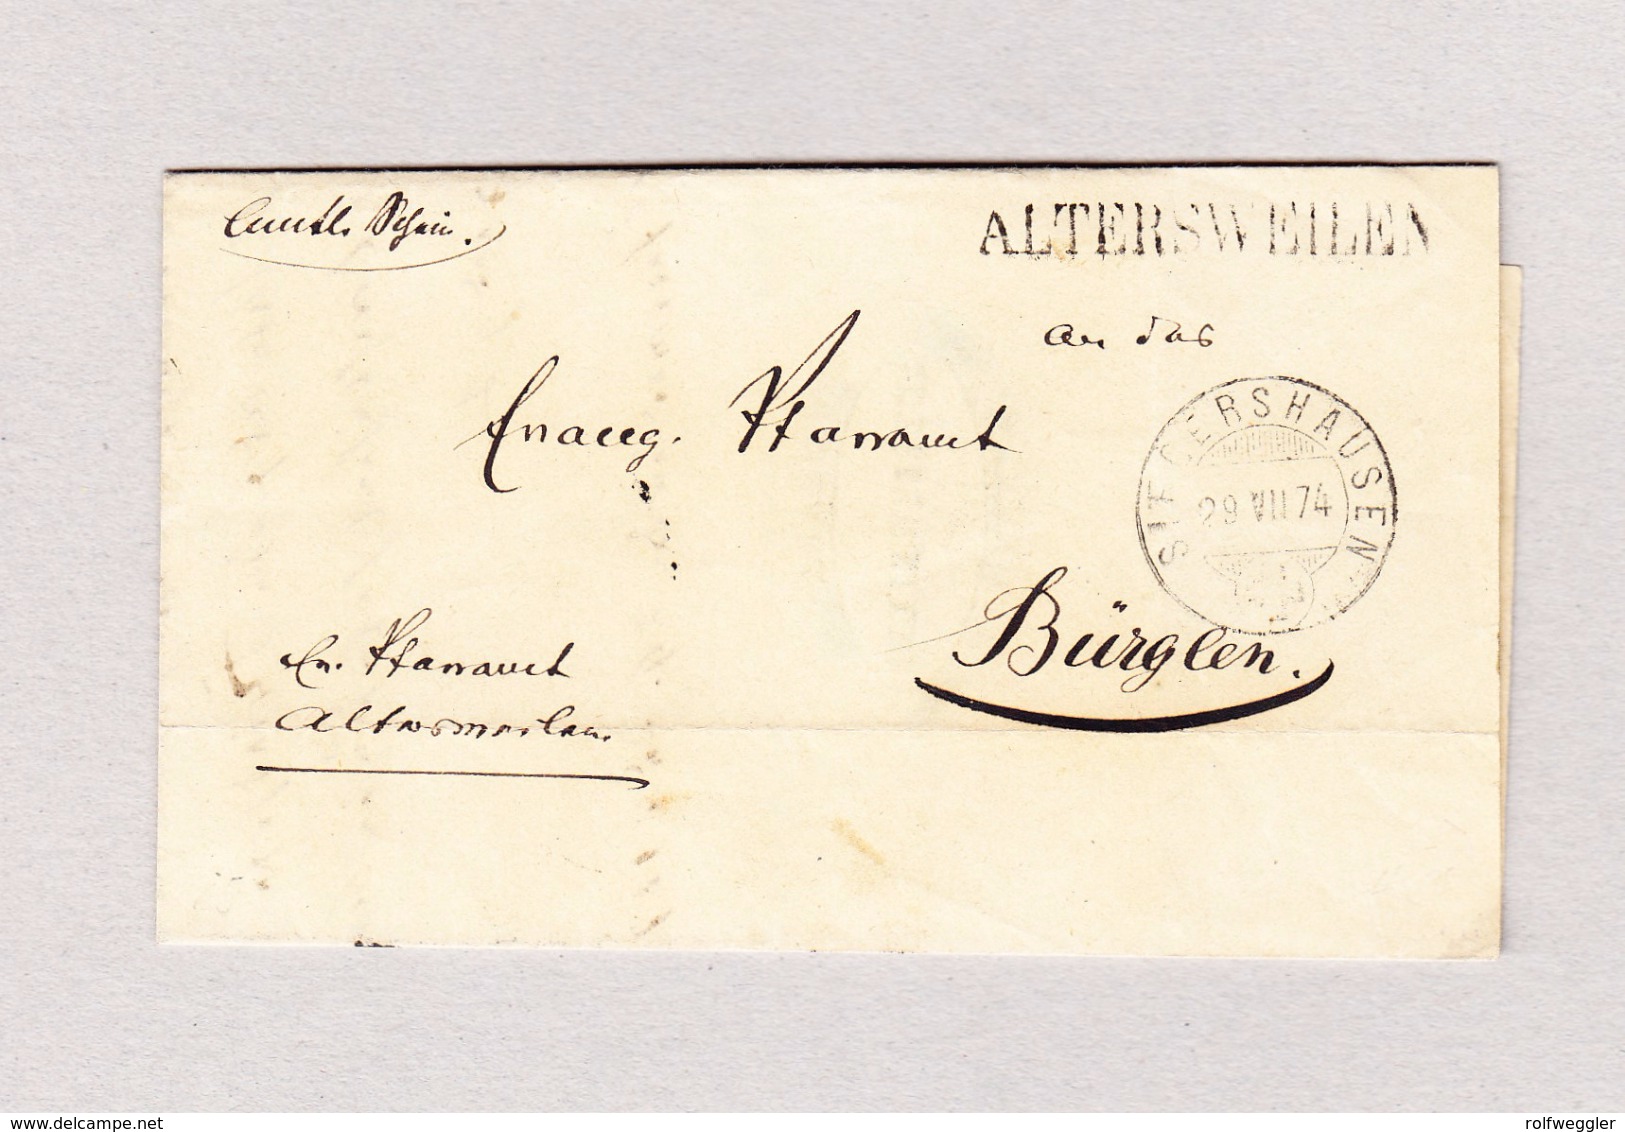 Amtl. Schein.
ALTERSWEILEN
An das
Evang. Pfarramt
SIEGERSHAUSEN
29 VII 74
Bürglen.
Ev. Pfarramt
Altersweilen.
delcampe.net
rolfweggler